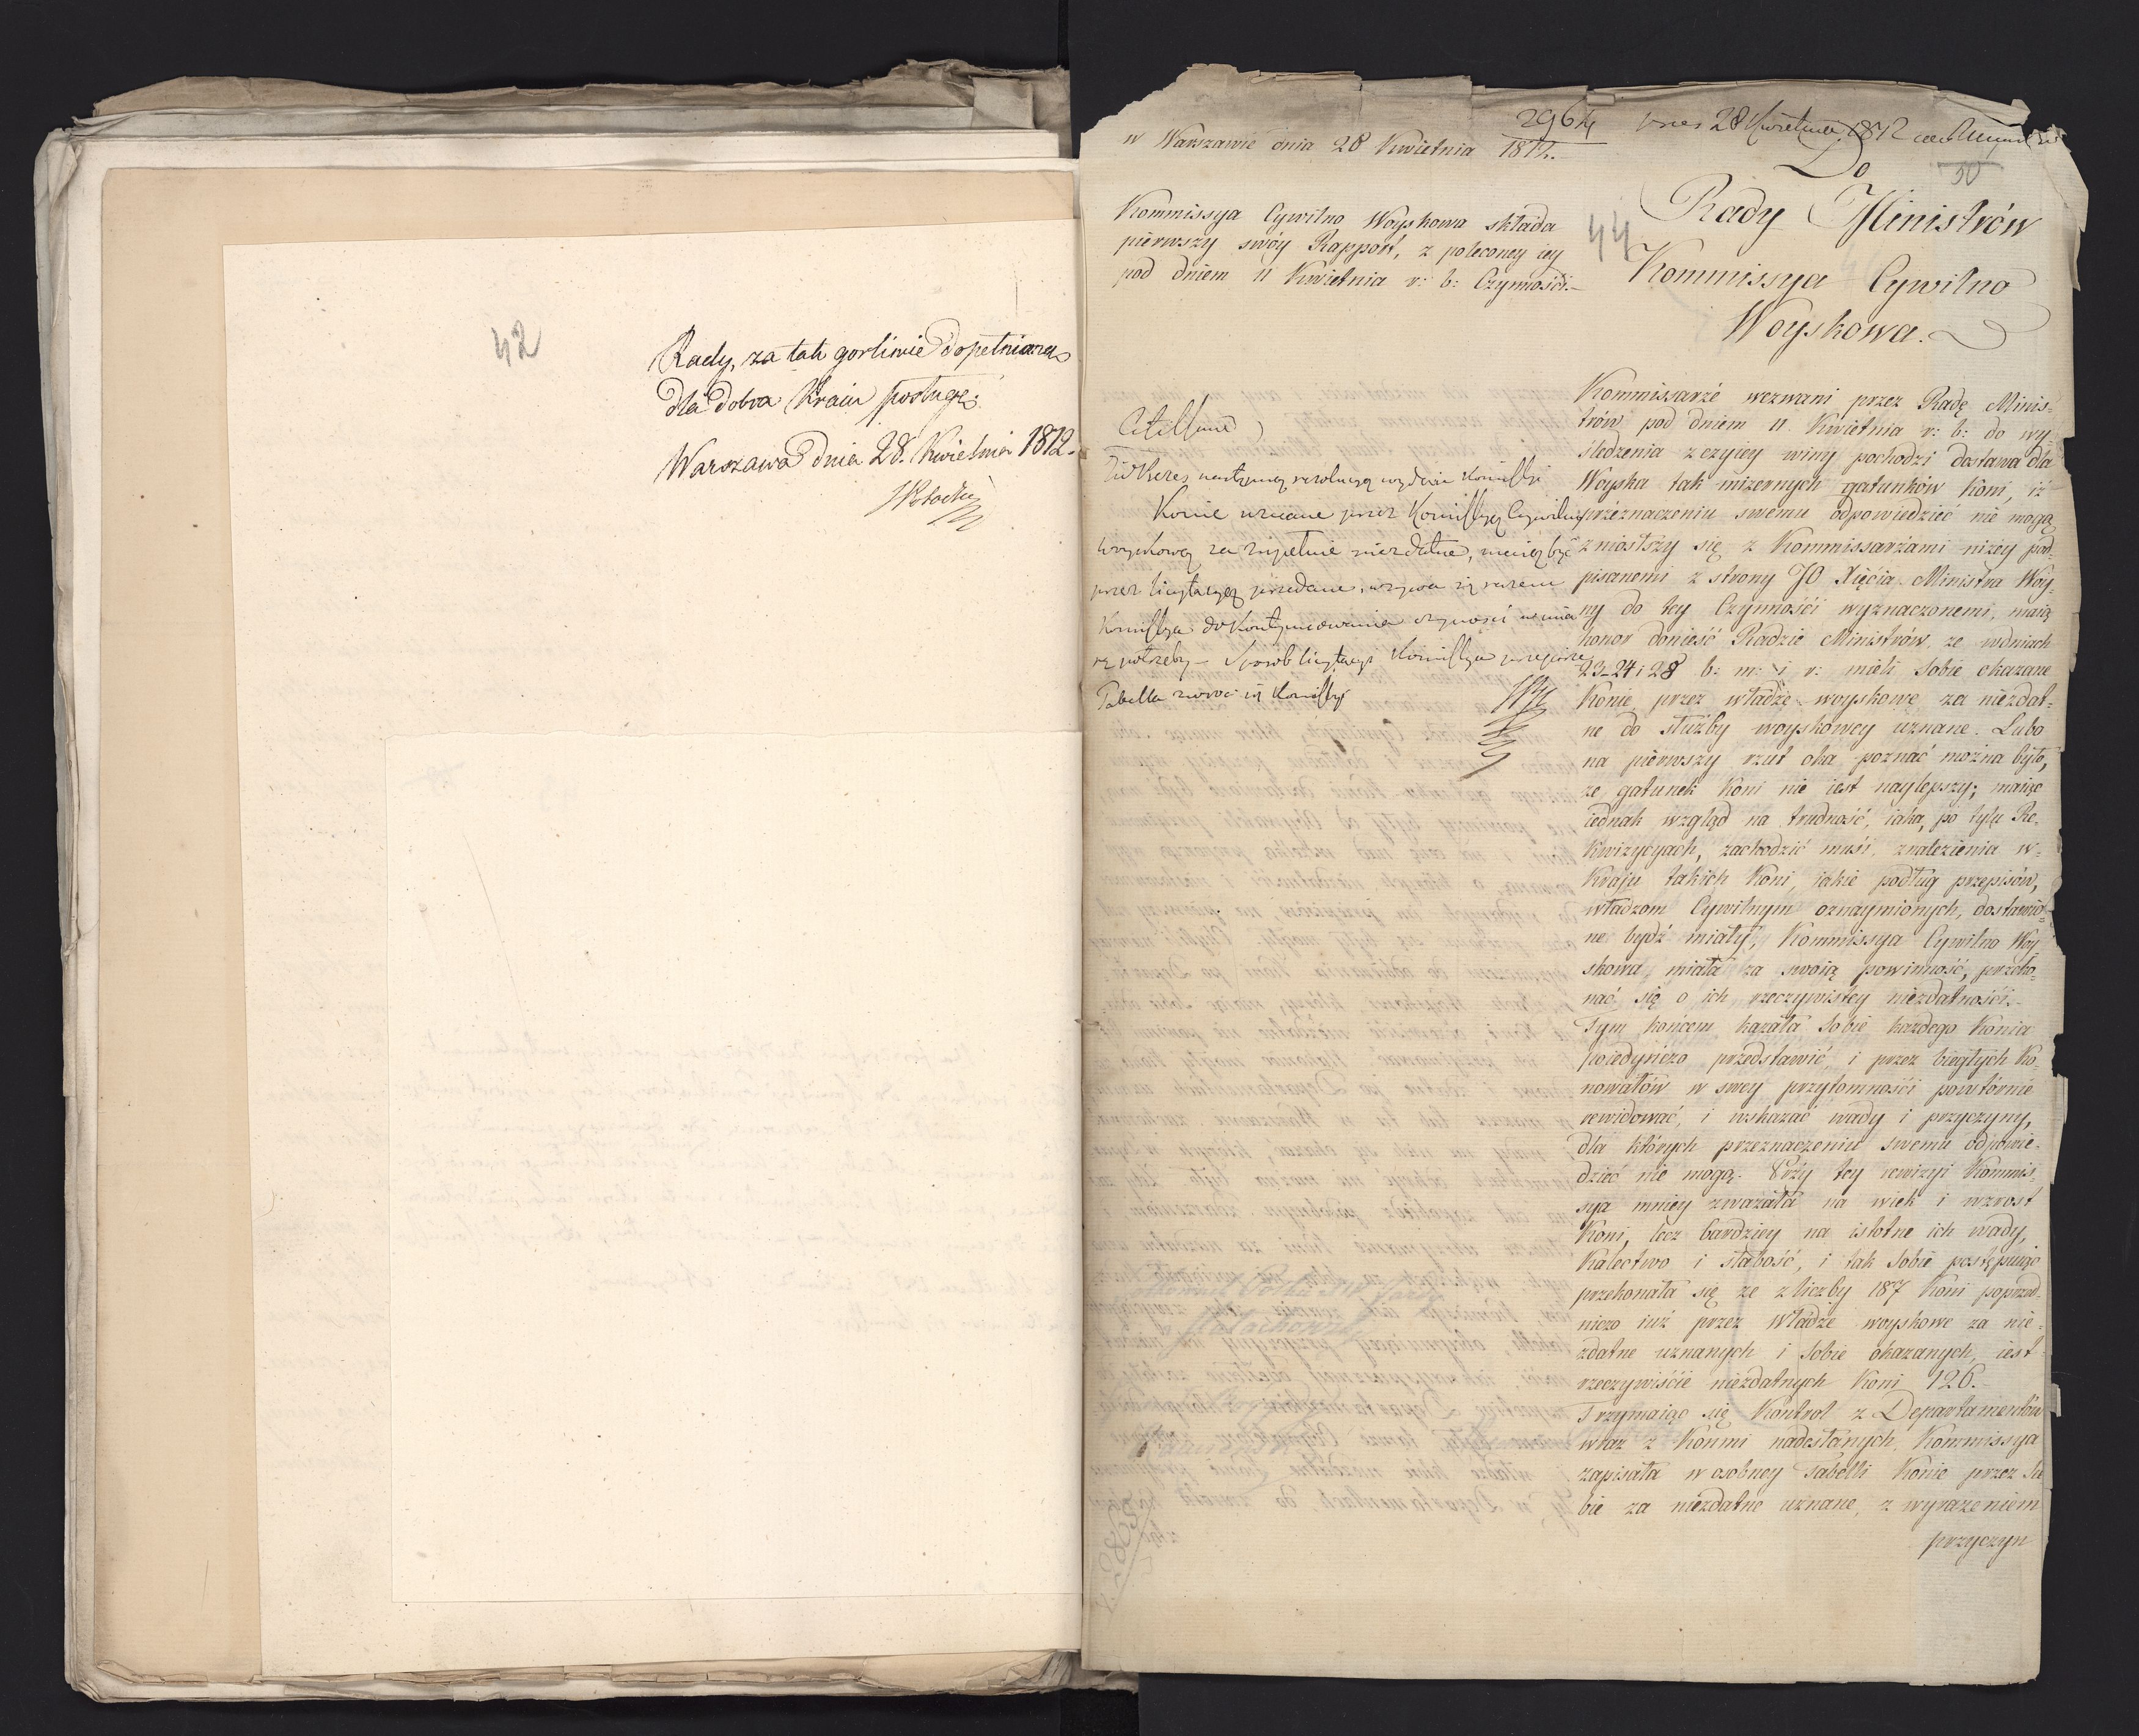 42
Rady, za tak gorliwie dopełnianą
dla dobra Kraiu posługę.
Warszawa dnia 28. Kwietnia 1812.
2964
28 Kwietnia 1812
w Warszawie dnia 28 Kwietnia 1812.
50
Kommissya Cywilno Woyskowa składa
pierwszy swóy Rapport, z poleconey iey
pod dniem 11 Kwietnia r: b: Czynności.
44
Do
Rady Ministrów
Kommissya Cywilno
Woyskowa.
Konie uznane przez Komissyą Cywilno
woyskową za zupełnie niezdatne, maią być
przez licytacyą przedane, wzywa się razem
Komissya do kontynuowania czynności w mia
rę potrzeby – Sposób licytacyi Komissya przepisze
Tabella zwróci się Komissyi
Kommissarze wezwani przez Radę Minis-
trów pod dniem 11 Kwietnia r: b: do wy-
śledzenia z czyiey winy pochodzi dostawa dla
Woyska tak mizernych gatunków Koni, iż
przeznaczeniu swemu odpowiedzieć nie mogą
zniosłszy się z Kommissarzami niżey pod-
pisanemi z strony JO Xięcia Ministra Woy-
ny do tey Czynności wyznaczonemi, maią
honor donieść Radzie Ministrów, że w dniach
23-24 i 28 b: m: i r: mieli sobie okazane
Konie, przez władzę woyskową za niezdat-
ne do służby woyskowey uznane. Lubo
na pierwszy rzut oka poznać można było,
że gatunek Koni nie iest naylepszy; maiąc
iednak wzgląd na trudność, iaka, po tylu Re-
kwizycyach, zachodzić musi, znalezienia w-
Kraju takich Koni, iakie podług przepisów,
władzom Cywilnym oznaymionych, dostawio-
ne bydź miały, Kommissya Cywilno Woy-
skowa miała za swoią powinność, przeko-
nać się o ich rzeczywistey niezdatności.
Tym końcem kazała sobie każdego Konia
poiedynczo przedstawić, i przez biegłych Ko-
nowałów w swey przytomności powtórnie
rewidować, i wskazać wady i przyczyny,
dla których przeznaczeniu swemu odpowie-
dzieć nie mogą. Przy tey rewizyi Kommis-
sya mniey zważała na wiek i wzrost
Koni, lecz bardziey na istotne ich wady,
Kalectwo i słabość, i tak sobie postępuiąc
przekonała się że z liczby 187 Koni poprzed-
niczo iuż przez Władze woyskowe za nie-
zdatne uznanych i sobie okazanych, iest
rzeczywiście niezdatnych Koni 126.
Trzymaiąc się Kontrol z Departamentów
wraz z Końmi nadesłanych, Kommissya
zapisała w osobney tabelli Konie przez sie
bie za niezdatne uznane, z wyrażeniem
przyczyn